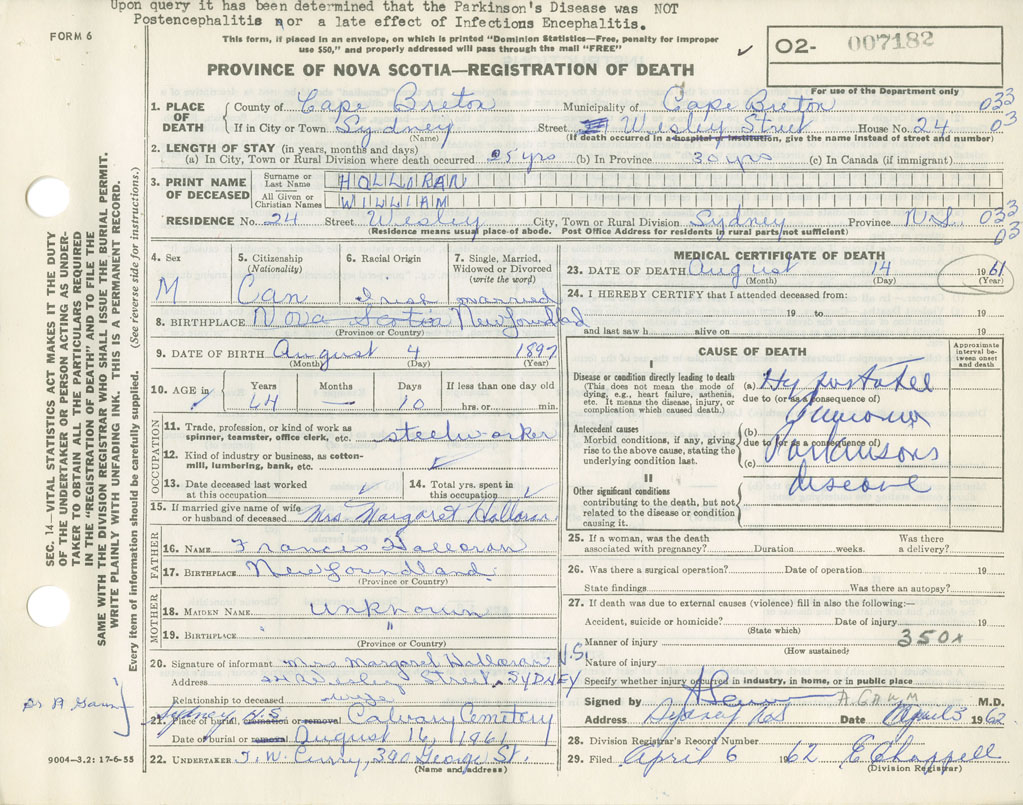 Upon query it has been determined that the Parkinson's Disease was NOT
Postencephalitis nor a late effect of Infections Encephalitis.
FORM 6
This form, if placed in an envelope, on which is printed "Dominion Statistics—Free, penalty for improper
use $50," and properly addressed will pass through the mail "FREE"
02- 007182
PROVINCE OF NOVA SCOTIA—REGISTRATION OF DEATH
For use of the Department only
1. PLACE OF DEATH County of Cape Breton Municipality of Cape Breton 033
If in City or Town Sydney Street Wesley Street House No. 24 03
(Name) (If death occurred in a hospital or institution, give the name instead of street and number)
2. LENGTH OF STAY (in years, months and days)
(a) In City, Town or Rural Division where death occurred 25 yrs (b) In Province 30 yrs (c) In Canada (if immigrant)
3. PRINT NAME OF DECEASED Surname or Last Name HOLLORAN
All Given or Christian Names WILLIAM
RESIDENCE No. 24 Street Wesley City, Town or Rural Division Sydney Province N.S. 033
03
(Residence means usual place of abode. Post Office Address for residents in rural parts not sufficient)
4. Sex 5. Citizenship (Nationality) 6. Racial Origin 7. Single, Married, Widowed or Divorced (write the word)
M Can Irish married
8. BIRTHPLACE Nova Scotia Newfoundlad
(Province or Country)
9. DATE OF BIRTH August 4 1897
(Month) (Day) (Year)
10. AGE in Years Months Days If less than one day old
64 10 hrs. or min.
OCCUPATION
11. Trade, profession, or kind of work as spinner, teamster, office clerk, etc. steelworker
12. Kind of industry or business, as cotton-mill, lumbering, bank, etc.
13. Date deceased last worked at this occupation 14. Total yrs. spent in this occupation
15. If married give name of wife or husband of deceased Mrs. Margaret Halloran
FATHER
16. NAME Francis Halloran
17. BIRTHPLACE Newfoundland
(Province or Country)
MOTHER
18. MAIDEN NAME unknown
19. BIRTHPLACE "
(Province or Country)
20. Signature of informant Mrs Margaret Halloran
Address 24 Wesley Street, SYDNEY N.S.
Relationship to deceased wife
Sydney N.S.
21. Place of burial, cremation or removal Calvary Cemetery
Date of burial or removal August 16, 1961
22. UNDERTAKER T.W. Curry, 390 George St.
(Name and address)
MEDICAL CERTIFICATE OF DEATH
23. DATE OF DEATH August 14 1961
(Month) (Day) (Year)
24. I HEREBY CERTIFY that I attended deceased from:
19 to 19
and last saw h alive on 19
CAUSE OF DEATH
Approximate interval between onset and death
I
Disease or condition directly leading to death
(This does not mean the mode of dying, e.g., heart failure, asthenia, etc. It means the disease, injury, or complication which caused death.)
(a)
due to (or as a consequence of)
Antecedent causes
Morbid conditions, if any, giving rise to the above cause, stating the underlying condition last.
(b)
due to (or as a consequence of)
(c) Parkinsons
II
Other significant conditions
contributing to the death, but not related to the disease or condition causing it.
25. If a woman, was the death associated with pregnancy? Duration weeks. Was there a delivery?
26. Was there a surgical operation? Date of operation 19
State findings Was there an autopsy?
27. If death was due to external causes (violence) fill in also the following:—
Accident, suicide or homicide? Date of injury 19
(State which)
Manner of injury 350x
(How sustained)
Nature of injury
Specify whether injury occurred in industry, in home, or in public place
Signed by M.D.
Address Sydney Date April 3 1962
28. Division Registrar's Record Number
29. Filed April 6 1962 E Chappell
(Division Registrar)
SEC. 14—VITAL STATISTICS ACT MAKES IT THE DUTY
OF THE UNDERTAKER OR PERSON ACTING AS UNDER-
TAKER TO OBTAIN ALL THE PARTICULARS REQUIRED
IN THE "REGISTRATION OF DEATH" AND TO FILE THE
SAME WITH THE DIVISION REGISTRAR WHO SHALL ISSUE THE BURIAL PERMIT.
WRITE PLAINLY WITH UNFADING INK. THIS IS A PERMANENT RECORD.
Every item of information should be carefully supplied. (See reverse side for instructions.)
9004—3.2: 17-6-55